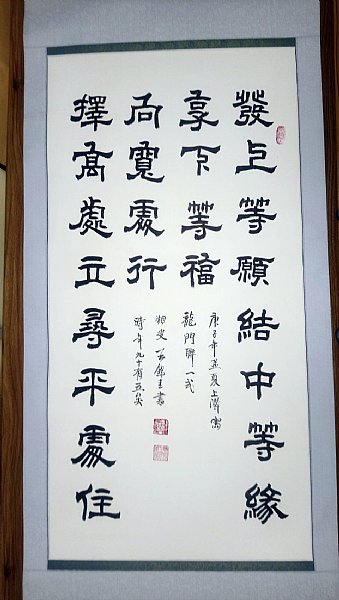 發上等願結中等緣
享下等福
庚子年孟夏上澣寫
龍門聯一式
擇高處立尋平處住
向寬處行
叟 書
時年九十有五矣